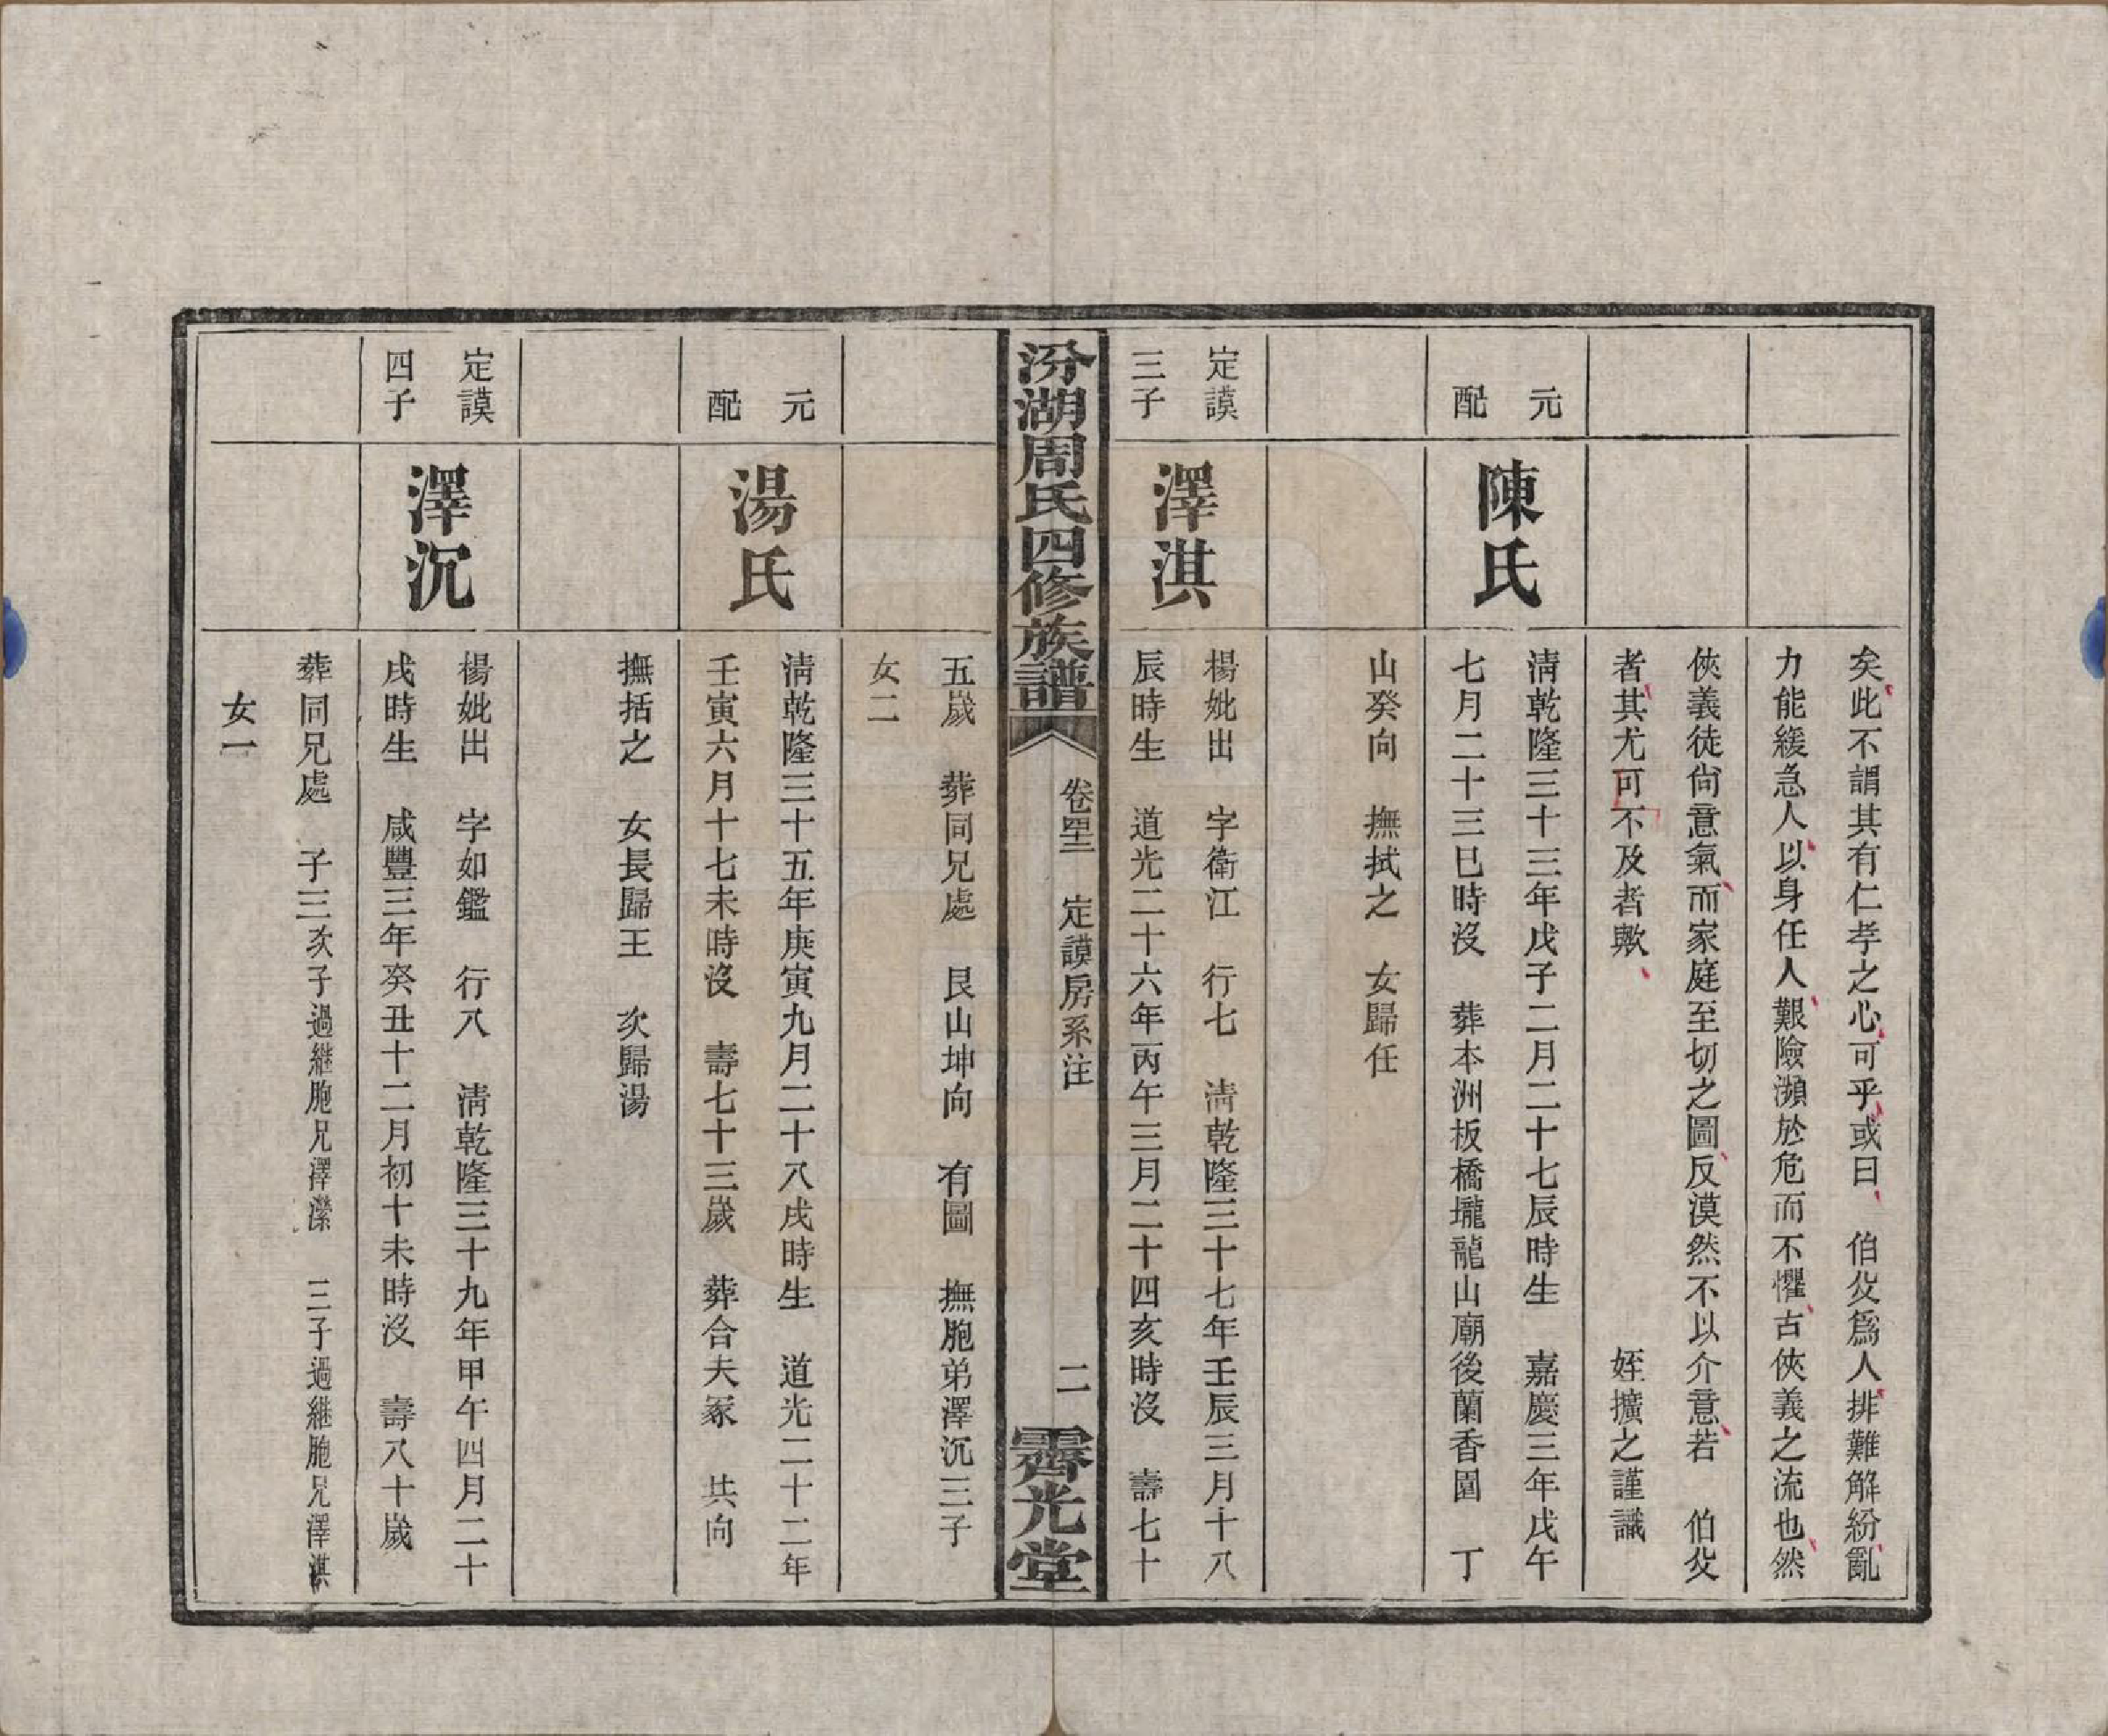 矣此不謂其有仁孝之心可乎或曰　伯父爲人排難解紛亂
力能緩急人以身任人艱險瀕於危而不懼古俠義之流也然
俠義徒尙意氣而家庭至切之圖反漠然不以介意若　伯父
者其尤可不及者歟　姪擴之謹識
元配
陳氏
淸乾隆三十三年戊子二月二十七辰時生　嘉慶三年戊午
七月二十三巳時沒　葬本洲板橋壠龍山廟後蘭香園　丁
山癸向　撫拭之　女歸任
定謨三子
澤淇
楊妣出　字衛江　行七　淸乾隆三十七年壬辰三月十八
辰時生　道光二十六年丙午三月二十四亥時沒　壽七十
汾湖周氏四修族譜
卷四十三　定謨房系注
二
霽光堂
五歲　葬同兄處　艮山坤向　有圖　撫胞弟澤沉三子
女二
元配
湯氏
淸乾隆三十五年庚寅九月二十八戌時生　道光二十二年
壬寅六月十七未時沒　壽七十三歲　葬合夫冢　共向
撫括之　女長歸王　次歸湯
定謨四子
澤沉
楊妣出　字如鑑　行八　淸乾隆三十九年甲午四月二十
戌時生　咸豐三年癸丑十二月初十未時沒　壽八十歲
葬同兄處　子三次子過繼胞兄澤濴　三子過繼胞兄澤淇
女一